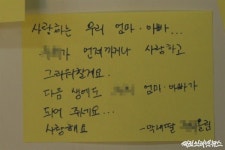 사랑하는 우리 엄마·아빠...
가 언제까지나 사랑하고
그리워할게요.
다음 생에도 엄마·아빠가
되어 주세요...
사랑해요
-막내딸 올림